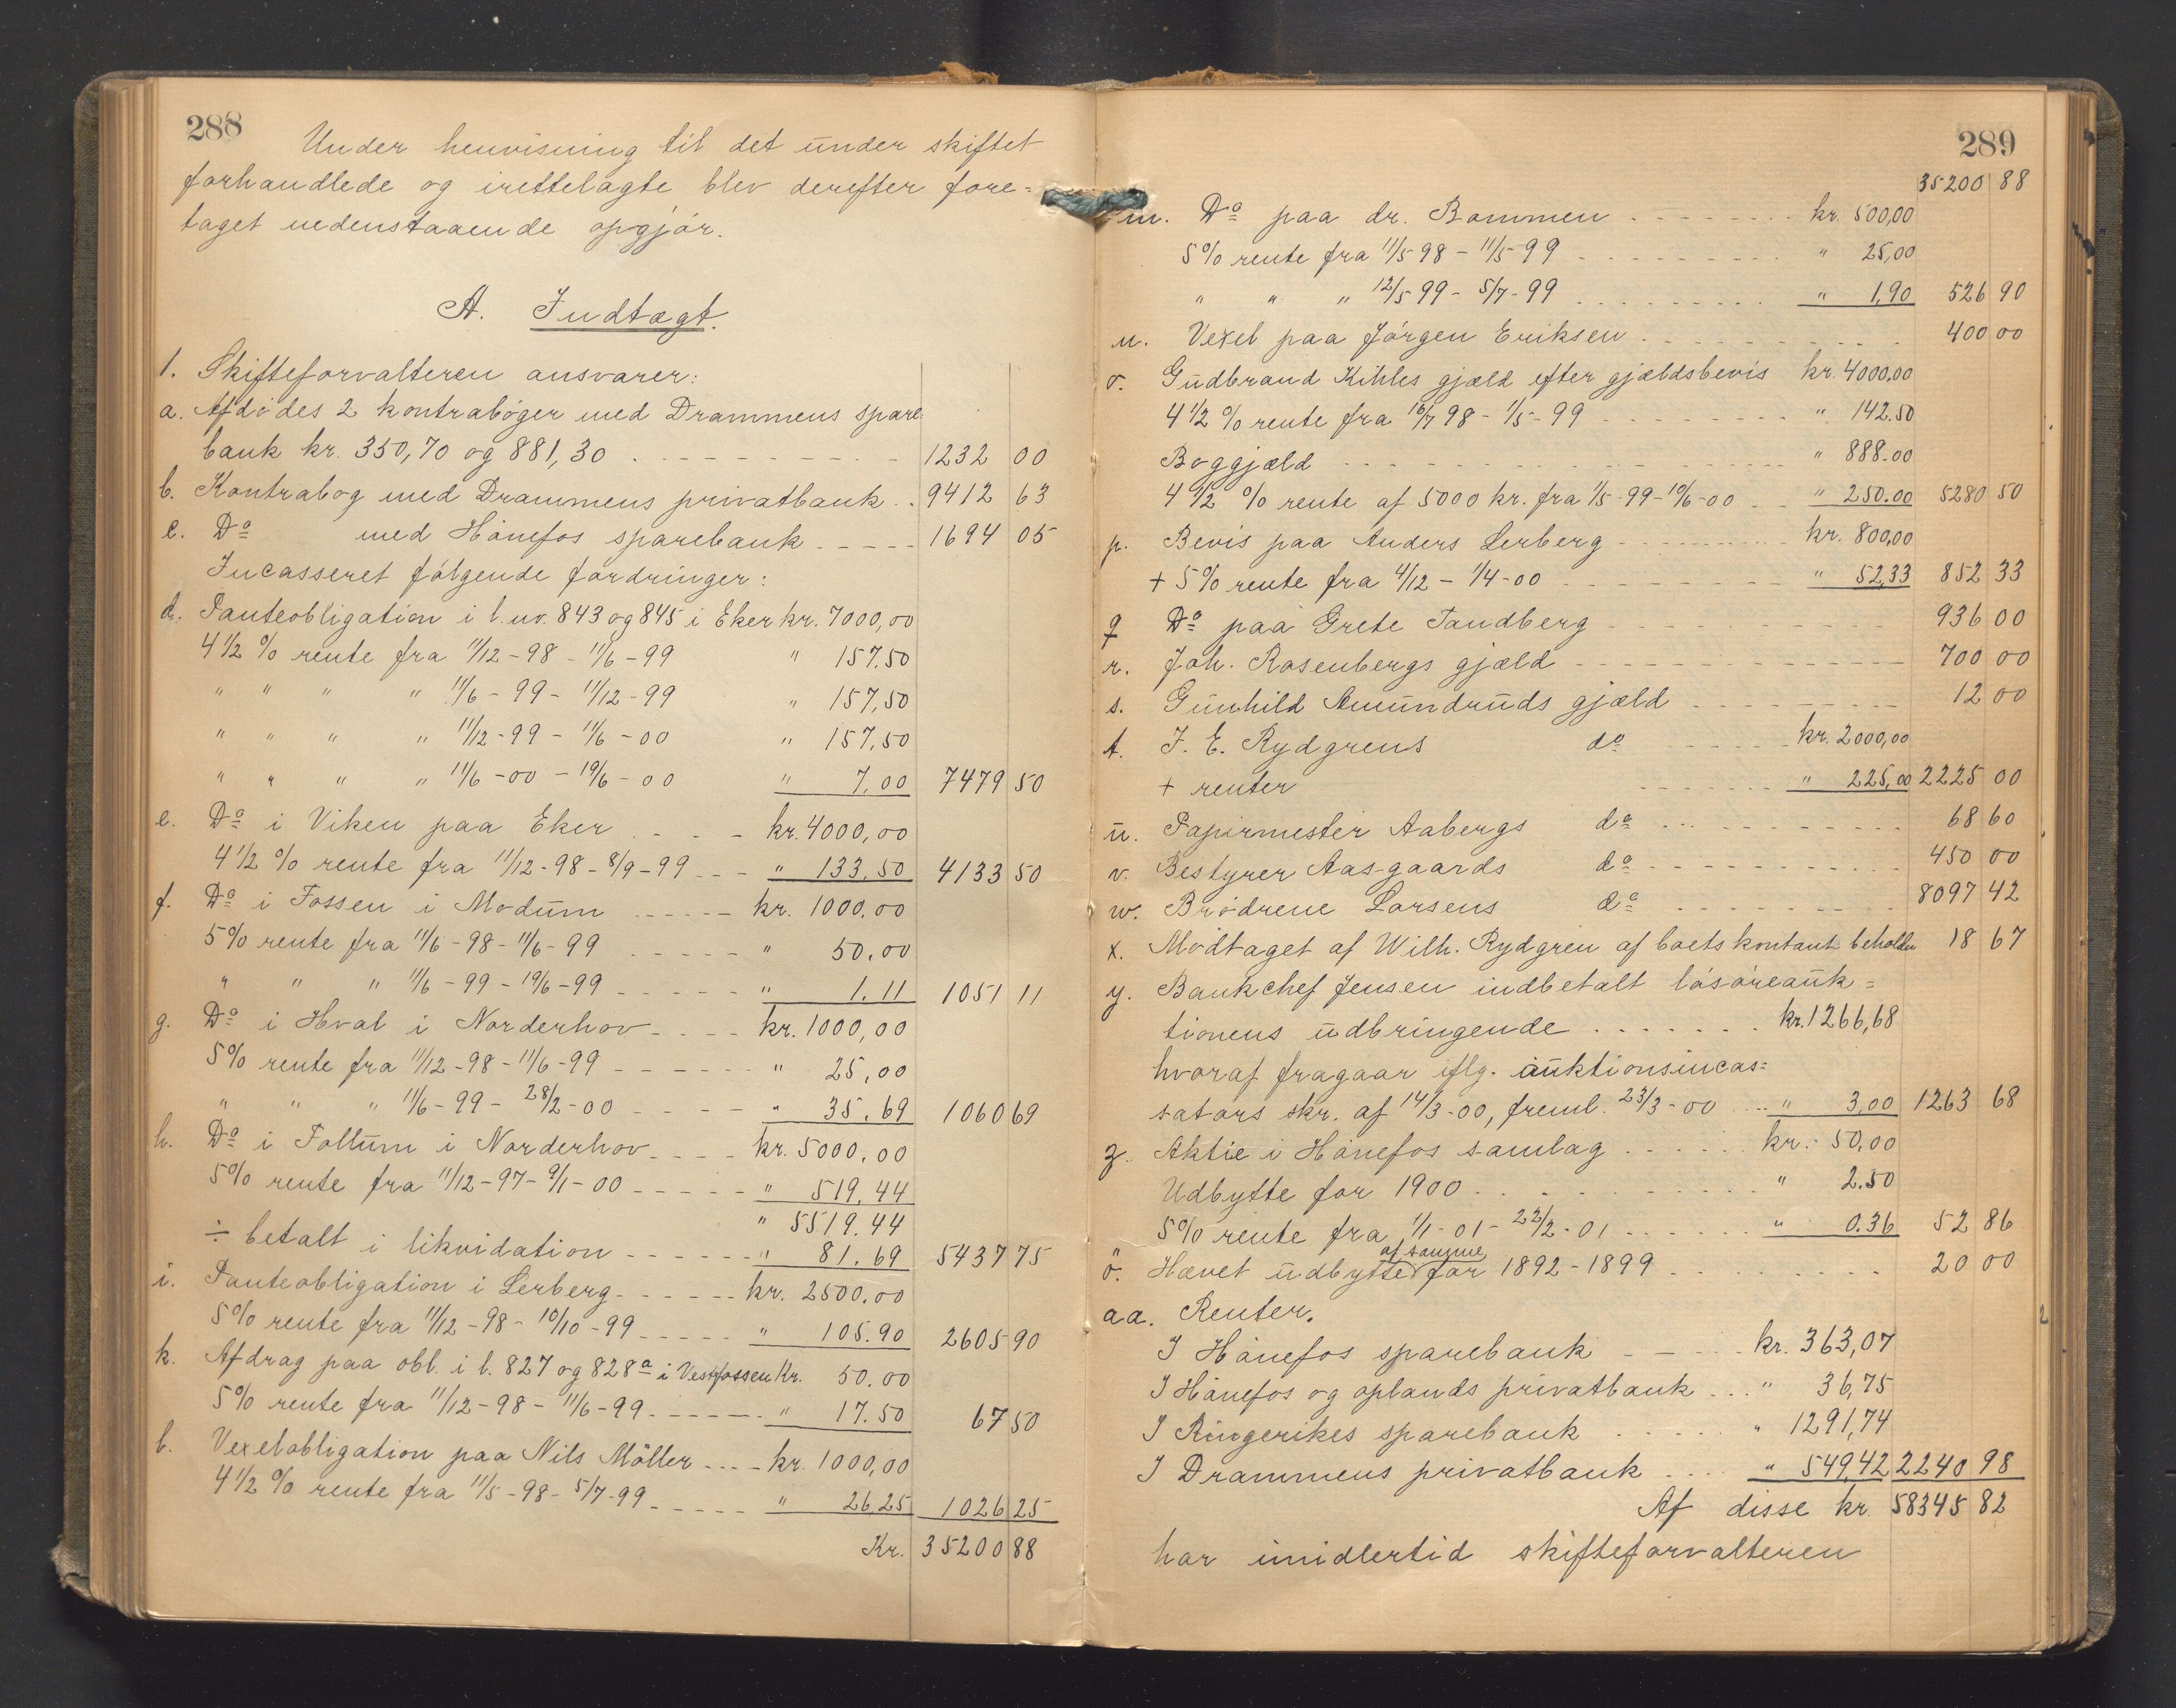 288
Under henvisning til det under skiftet
forhandlede og irettelagte blev derefter fore=
taget nedenstaaende opgjør.
A. Indtægt.
1. Skifteforvalteren ansvarer:
a. Afdødes 2 kontrabøger med Drammens spare
bank kr. 350,70 og 881,30 1232 00
b. Kontrabog med Drammens privatbank 9412 63
c. Do med Hönefos sparebank 1694 05
Incasseret følgende fordringer:
d. Panteobligation i l.nr. 843 og 845 i Eker kr. 7000,00
4 1/2 % rente fra 11/12-98 - 11/6-99 " 157.50
" " " " 11/6-99 - 11/12-99 " 157,50
" " " " 11/12-99 - 11/6-00 " 157,50
" " " " 11/6-00 - 19/6-00 " 7,00 7479 50
e. Do i Viken paa Eker kr. 4000,00
4 1/2 % rente fra 11/12-98 - 8/9-99 " 133.50 4133 50
f. Do i Fossen i Modum kr. 1000.00
5% rente fra 11/6-98 - 11/6-99 " 50.00
" " " 11/6-99 - 19/6-99 " 1.11 1051 11
g. Do i Hval i Norderhov kr. 1000,00
5% rente fra 11/12-98 - 11/6-99 " 25,00
" " " 11/6-99 - 28/2-00 " 35.69 1060 69
h. Do i Follum i Norderhov kr. 5000.00
5% rente fra 11/12-97 - 9/1-00 " 519.44
" 5519.44
÷ betalt i likvidation " 81.69 5437 75
i. Panteobligation i Lerberg kr. 2500.00
5% rente fra 11/12-98 - 10/10-99 " 105.90 2605 90
k. Afdrag paa obl. i l. 827 og 828a i Vestfossen Kr. 50.00
5% rente fra 11/12-98 - 11/6-99 " 17.50 67 50
l. Vexelobligation paa Nils Möller kr. 1000,00
4 1/2 % rente fra 11/5-98 - 5/7-99 " 26,25 1026 25
Kr. 35200 88
289
35200 88
m. Do paa dr. Bommen kr. 500,00
5% rente fra 11/5 98 - 11/5-99 " 25,00
" " " 12/5 99 - 5/7-99 " 1,90 526 90
n. Vexel paa Jörgen Eriksen 400 00
o. Gudbrand Kihles gjæld efter gjældsbevis kr. 4000,00
4 1/2 % rente fra 16/7 98 - 1/5-99 " 142.50
Boggjæld " 888.00
4 1/2 % rente af 5000 kr. fra 1/5-99 - 10/6-00 " 250.00 5280 50
p. Bevis paa Anders Lerberg kr. 800,00
+ 5% rente fra 4/12 - 1/4-00 " 52,33 852 33
q Do paa Grete Tandberg 936 00
r. Joh. Rosenbergs gjæld 700 00
s. Gunhild Amundruds gjæld 12 00
t. J. E. Rydgrens do kr. 2000,00
+ renter " 225,00 2225 00
u. Papirmester Aabergs do 68 60
v. Bestyrer Aasgaards do 450 00
w. Brødrene Larsens do 8097 42
x. Modtaget af Wilh. Rydgren af boets kontant beholdn 18 67
y. Bankchef Jensen indbetalt løsøreauk=
tionens udbringende kr. 1266,68
hvoraf fragaar iflg. auktionsincas=
sators skr. af 14/3-00, freml. 23/3-00 " 3,00 1263 68
z. Aktie i Hönefos samlag kr. 50,00
Udbytte for 1900 " 2.50
5% rente fra 1/1-01 - 22/2-01 " 0.36 52 86
ö. Hævet udbytte af samme for 1892-1899 20 00
aa. Renter.
I Hönefos sparebank kr. 363,07
I Hönefos og oplands privatbank " 36,75
I Ringerikes sparebank " 1291,74
I Drammens privatbank " 549,42 2240 98
Af disse kr. 58345 82
har imidlertid skifteforvalteren